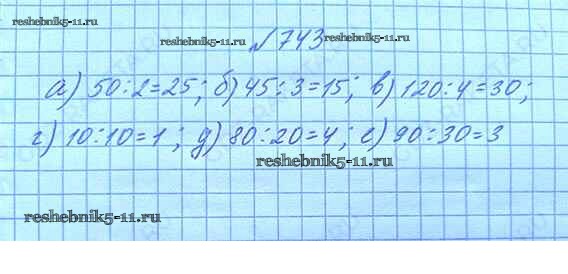 reshebnik5-11.ru
№ 743
reshebnik5-11.ru
reshebnik5-11.ru
а) 50:2=25; б) 45:3=15; в) 120:4=30;
г) 10:10=1; д) 80:20=4; е) 90:30=3
reshebnik5-11.ru
reshebnik5-11.ru